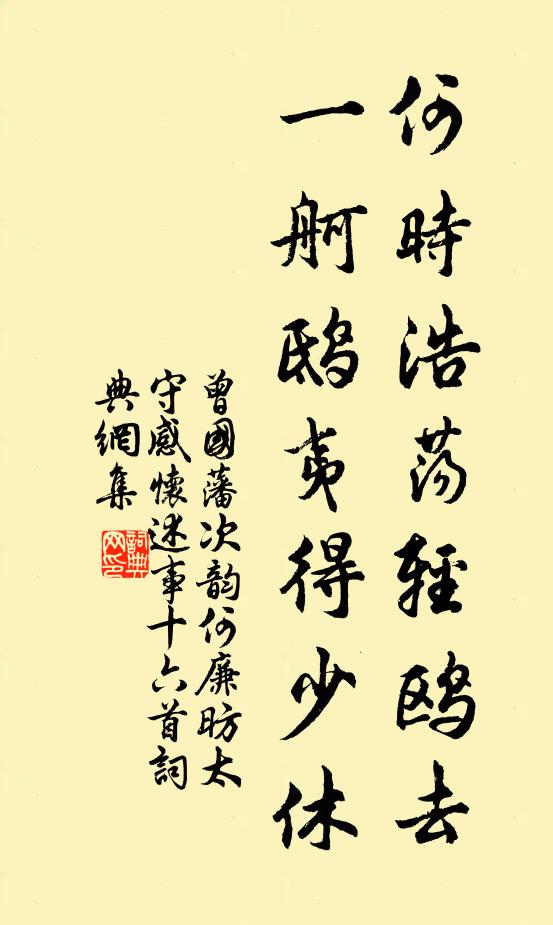 何時浩蕩輕鷗去
一舸鴟夷得少休
曾國藩次韵何廉昉太
守感懷述事十六首詞
典網集
詞典
网印